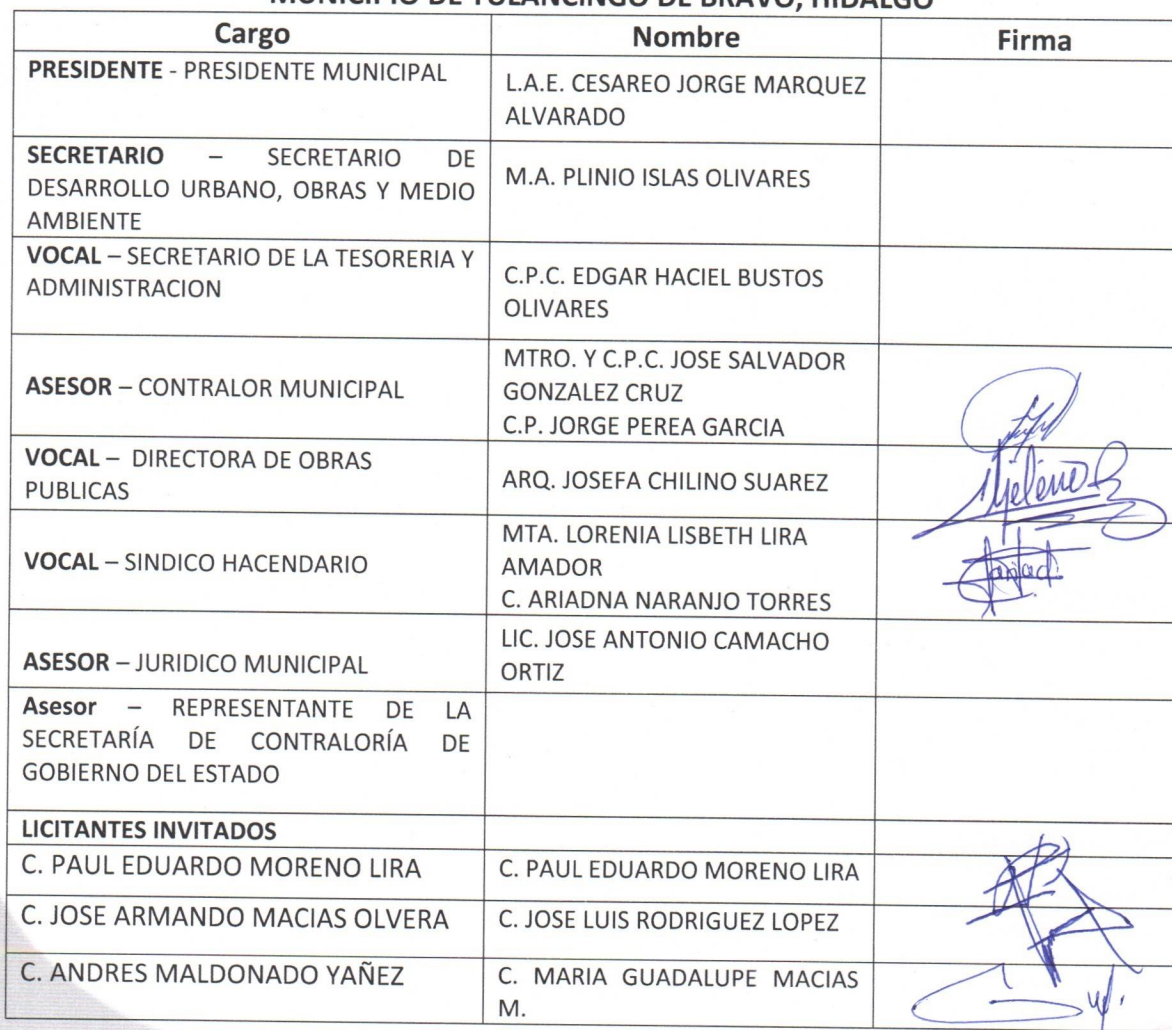 MUNICIPIO DE TULANCINGO DE BRAVO, HIDALGO
Cargo Nombre Firma
PRESIDENTE - PRESIDENTE MUNICIPAL
L.A.E. CESAREO JORGE MARQUEZ
ALVARADO
SECRETARIO – SECRETARIO DE
DESARROLLO URBANO, OBRAS Y MEDIO
AMBIENTE
M.A. PLINIO ISLAS OLIVARES
VOCAL – SECRETARIO DE LA TESORERIA Y
ADMINISTRACION
C.P.C. EDGAR HACIEL BUSTOS
OLIVARES
ASESOR – CONTRALOR MUNICIPAL
MTRO. Y C.P.C. JOSE SALVADOR
GONZALEZ CRUZ
C.P. JORGE PEREA GARCIA
VOCAL – DIRECTORA DE OBRAS
PUBLICAS
ARQ. JOSEFA CHILINO SUAREZ
VOCAL – SINDICO HACENDARIO
MTA. LORENIA LISBETH LIRA
AMADOR
C. ARIADNA NARANJO TORRES
ASESOR – JURIDICO MUNICIPAL
LIC. JOSE ANTONIO CAMACHO
ORTIZ
Asesor – REPRESENTANTE DE LA
SECRETARÍA DE CONTRALORÍA DE
GOBIERNO DEL ESTADO
LICITANTES INVITADOS
C. PAUL EDUARDO MORENO LIRA C. PAUL EDUARDO MORENO LIRA
C. JOSE ARMANDO MACIAS OLVERA C. JOSE LUIS RODRIGUEZ LOPEZ
C. ANDRES MALDONADO YAÑEZ C. MARIA GUADALUPE MACIAS
M.